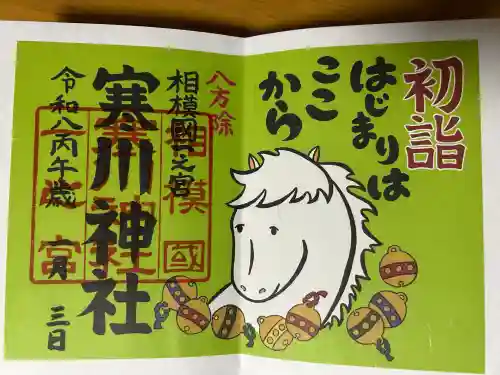 初詣
はじまりは
ここ
から
八方除
相模國一之宮
寒川神社
令和八丙午歳 一月 三日
相模國
一之宮